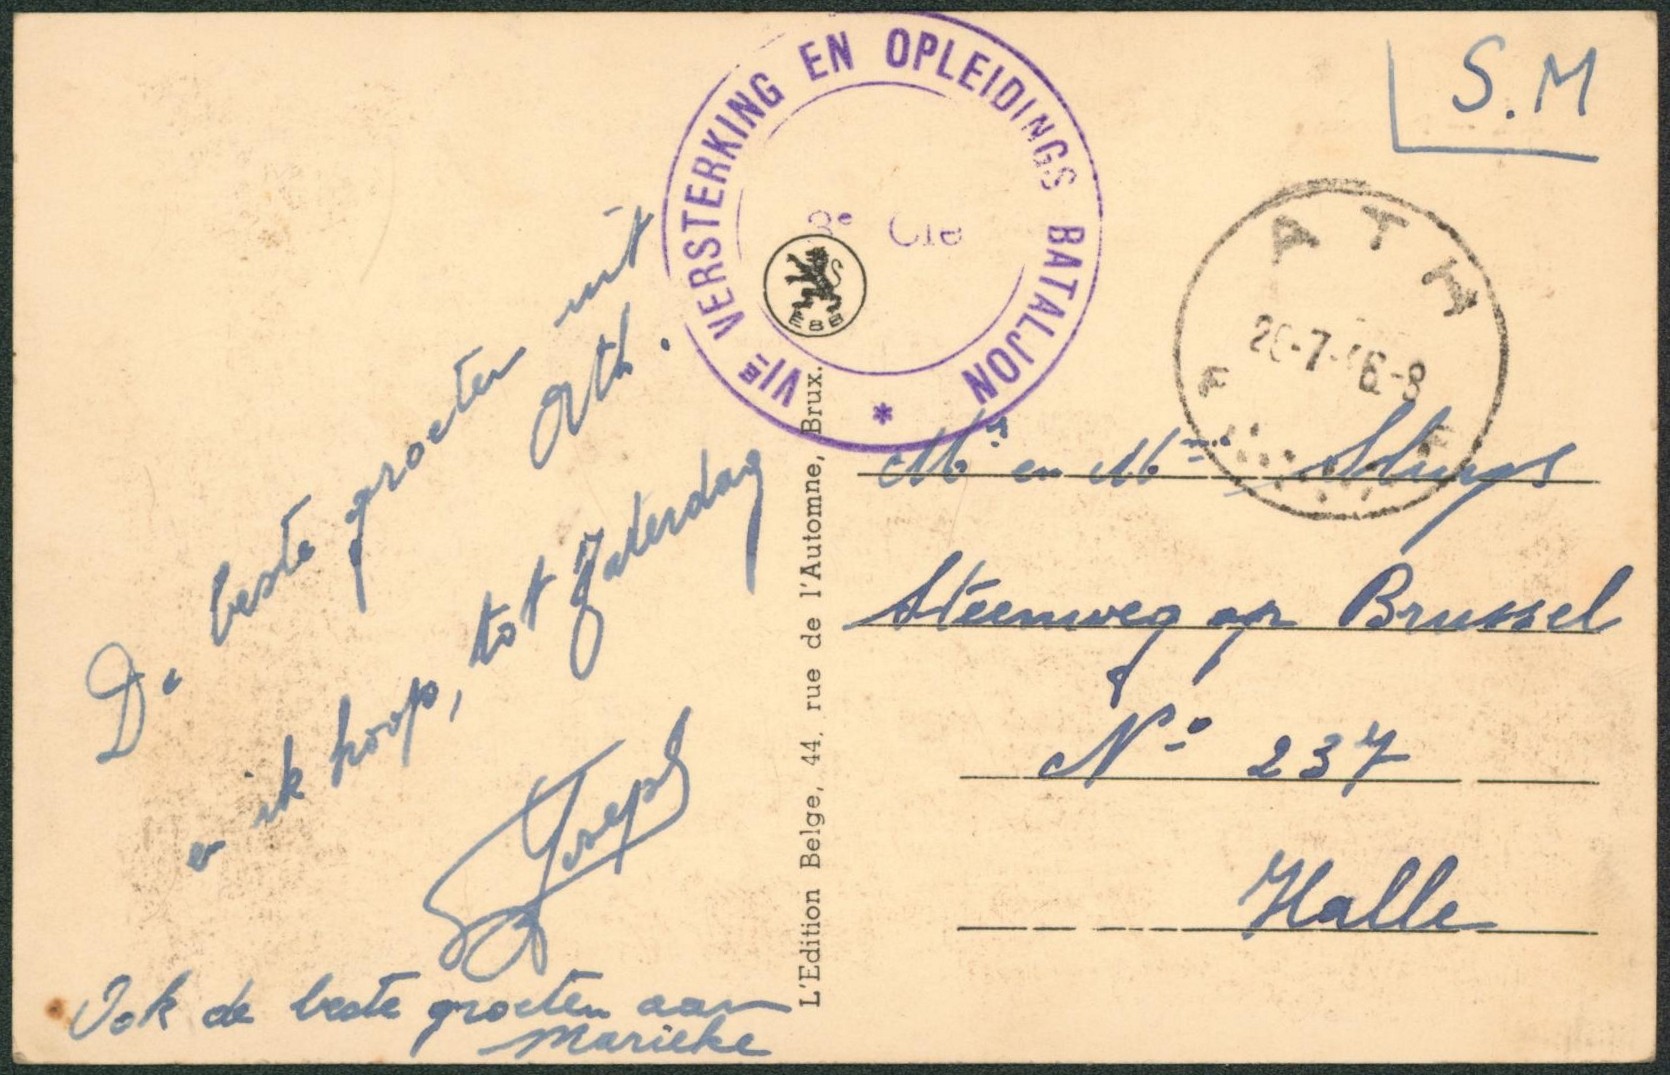 De beste groeten uit
Ath.
en ik hoop, tot Zaterdag
Joseph
Ook de beste groeten aan
Marieke
VIᵉ VERSTERKING EN OPLEIDINGS BATALJON *
Cie
EBB
L'Edition Belge, 44, rue de l'Automne, Brux.
S.M
ATH
-7-46-8
F F
Mʳ en Mᵐᵉ
Steenweg op Brussel
Nº 237
Halle